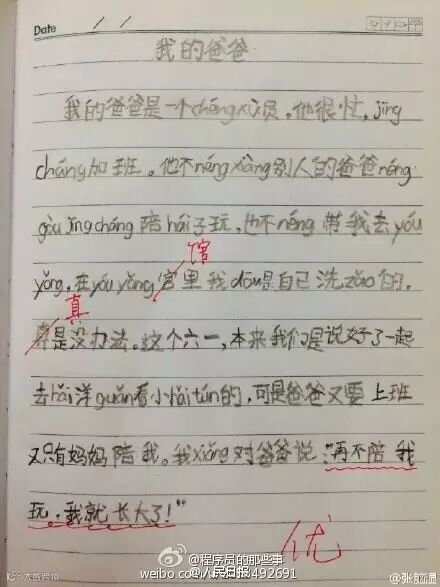 Date / /
我的爸爸
我的爸爸是一个chéngxù员。他很忙，jīng
cháng加班。他不néng xiàng别人的爸爸néng
gòu jīngcháng陪hái子玩，也不néng带我去yóu
馆
yǒng，在yóuyǒng官里我dōu是自己洗zǎo的。
真
真是没办法。这个六一，本来我们是说好了一起
去hǎi洋guǎn看小hǎitún的，可是爸爸又要上班
又只有妈妈陪我。我xiǎng对爸爸说："再不陪我
玩，我就长大了！"
优
@程序员的那些事
@人民日报
weibo.com/ 492691
大数据
@张